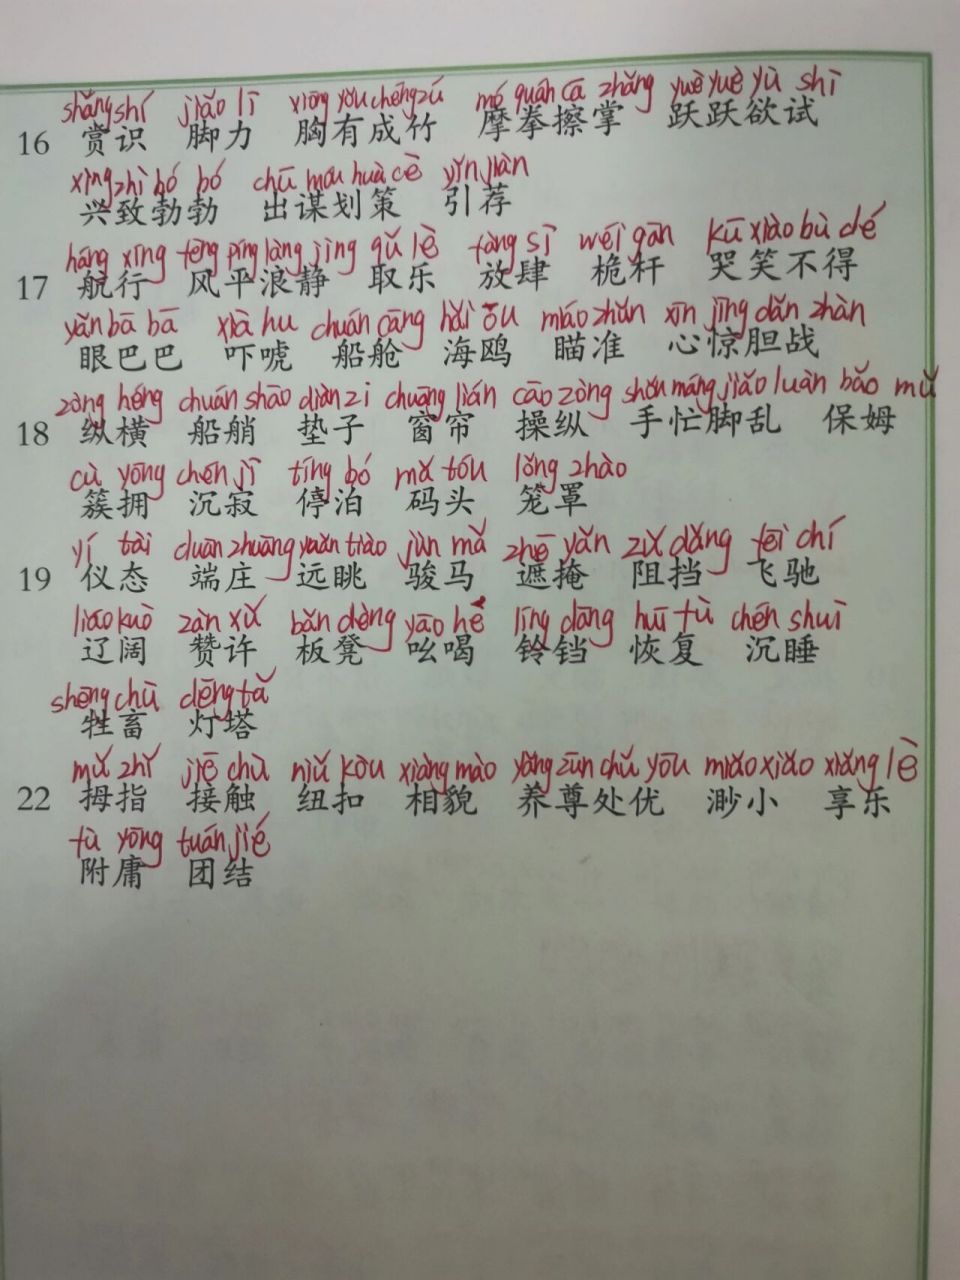 shǎng shí jiǎo lì xiōng yǒu chéng zú mó quán cā zhǎng yuè yuè yù shì
16 赏识 脚力 胸有成竹 摩拳擦掌 跃跃欲试
xìng zhì bó bó chū móu huà cè yǐn jiàn
兴致勃勃 出谋划策 引荐
háng xíng fēng píng làng jìng qǔ lè fàng sì wéi gān kū xiào bù dé
17 航行 风平浪静 取乐 放肆 桅杆 哭笑不得
yǎn bā bā xià hu chuán cāng hǎi ōu miáo zhǔn xīn jīng dǎn zhàn
眼巴巴 吓唬 船舱 海鸥 瞄准 心惊胆战
zòng héng chuán shāo diàn zi chuāng lián cāo zòng shǒu máng jiǎo luàn bǎo mǔ
18 纵横 船艄 垫子 窗帘 操纵 手忙脚乱 保姆
cù yōng chén jì tíng bó mǎ tóu lǒng zhào
簇拥 沉寂 停泊 码头 笼罩
yí tài duān zhuāng yuǎn tiào jùn mǎ zhē yǎn zǔ dǎng fēi chí
19 仪态 端庄 远眺 骏马 遮掩 阻挡 飞驰
liáo kuò zàn xǔ bǎn dèng yāo hē líng dāng huī fù chén shuì
辽阔 赞许 板凳 吆喝 铃铛 恢复 沉睡
shēng chù dēng tǎ
牲畜 灯塔
mǔ zhǐ jiē chù niǔ kòu xiàng mào yǎng zūn chǔ yōu miǎo xiǎo xiǎng lè
22 拇指 接触 纽扣 相貌 养尊处优 渺小 享乐
fù yōng tuán jié
附庸 团结